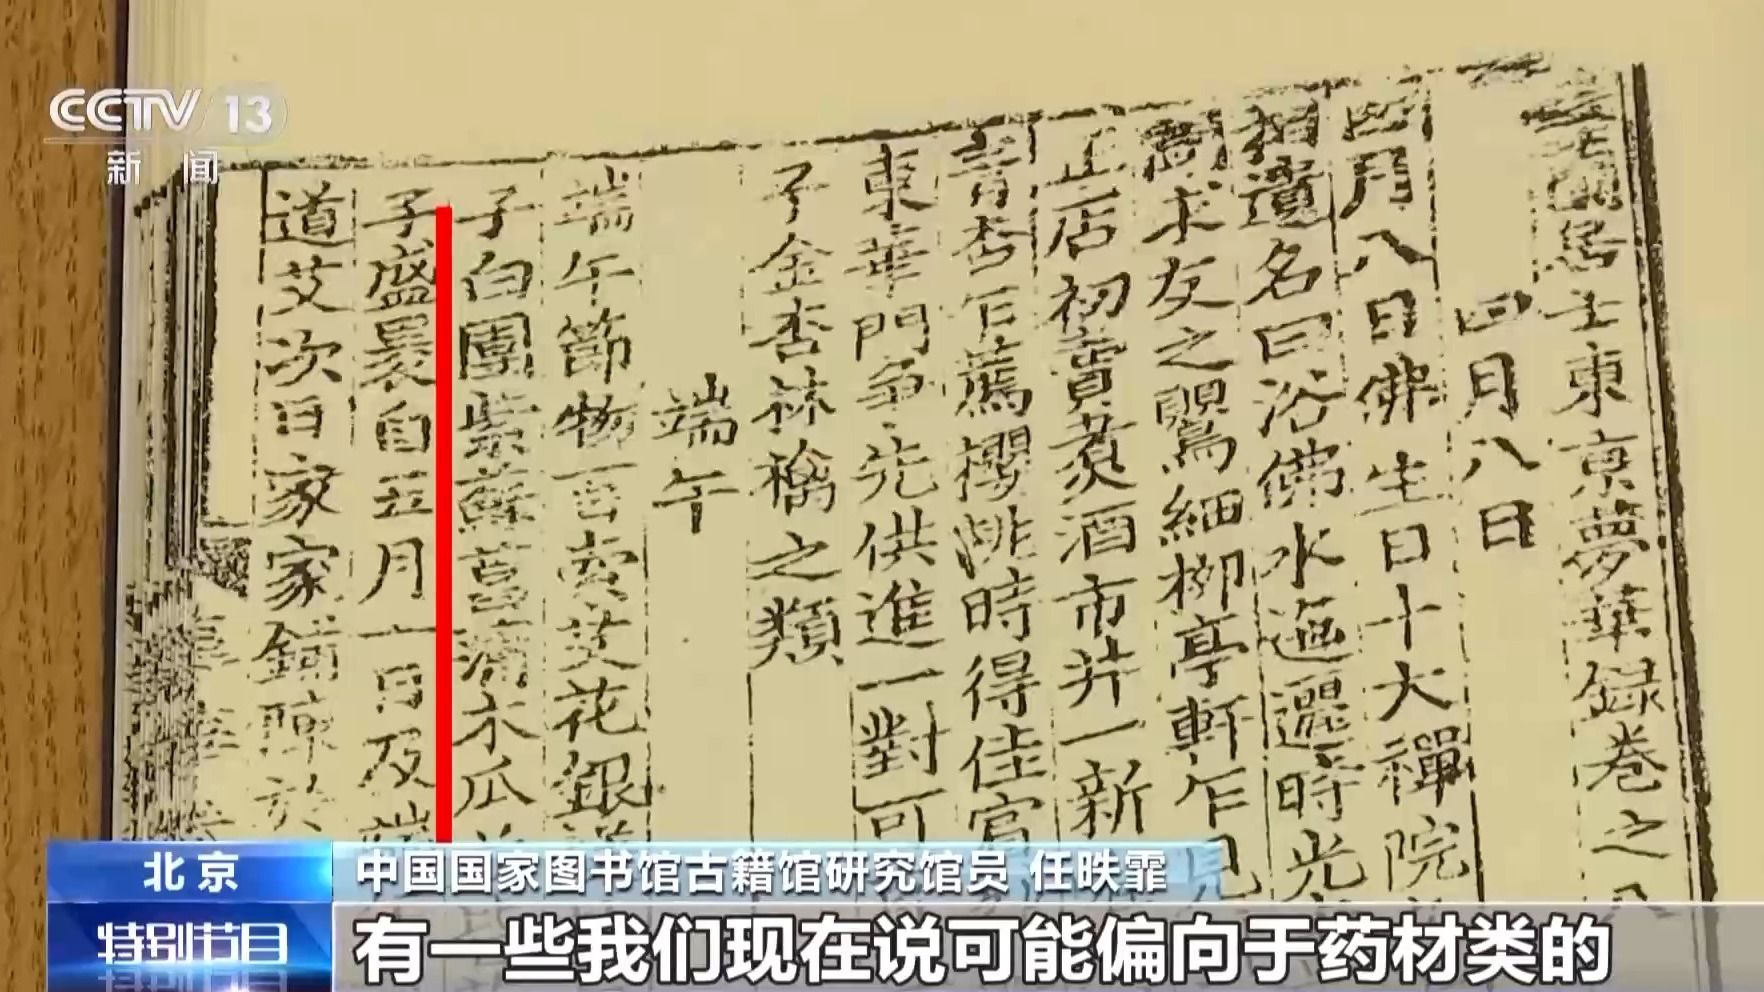 CCTV 13
新闻
居士東京夢華録卷之
四月八日
四月八日佛生日十大禪院
相遺名曰浴佛水迤邐時光
聞求友之鸎細柳亭軒乍見
正店初賣煑酒市井一新
青杏乍薦櫻桃時得佳賓
東華門争先供進一對可
子金杏林檎之類
端午
端午節物百索艾花銀
子白團紫蘇菖蒲木瓜
子盛裹自五月一日及端
道艾次日家家鋪陳於
北京
中国国家图书馆古籍馆研究馆员 任昳霏
特别节目
有一些我们现在说可能偏向于药材类的